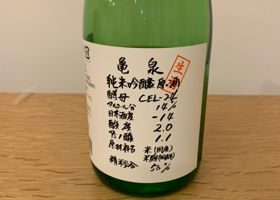 亀泉
生酒
純米吟醸原酒
酵母 CEL-24
アルコール分 14%
日本酒度 -14
酸度 2.0
アミノ酸 1.1
原材料名 米(国産)
米麹(国産米)
精米歩合 50%